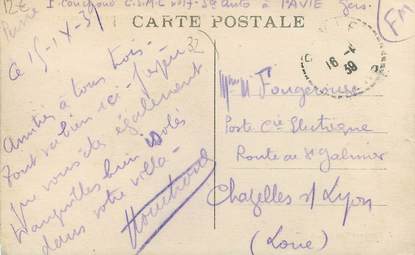 12€
I. Couchoud C.S.A.C. N°17- S°n auto à PAVIE Gers.
FM
CARTE POSTALE
Ce 15-IX-39
32
Amitiés à tous trois-
Tout va bien ici - J'espère
que vous êtes également
tranquilles bien isolés
dans votre villa-
Couchoud
16 -
39
Mme M Fougerouse
Poste Cie Electrique
Route de St Galmier
Chazelles s/ Lyon
(Loire)